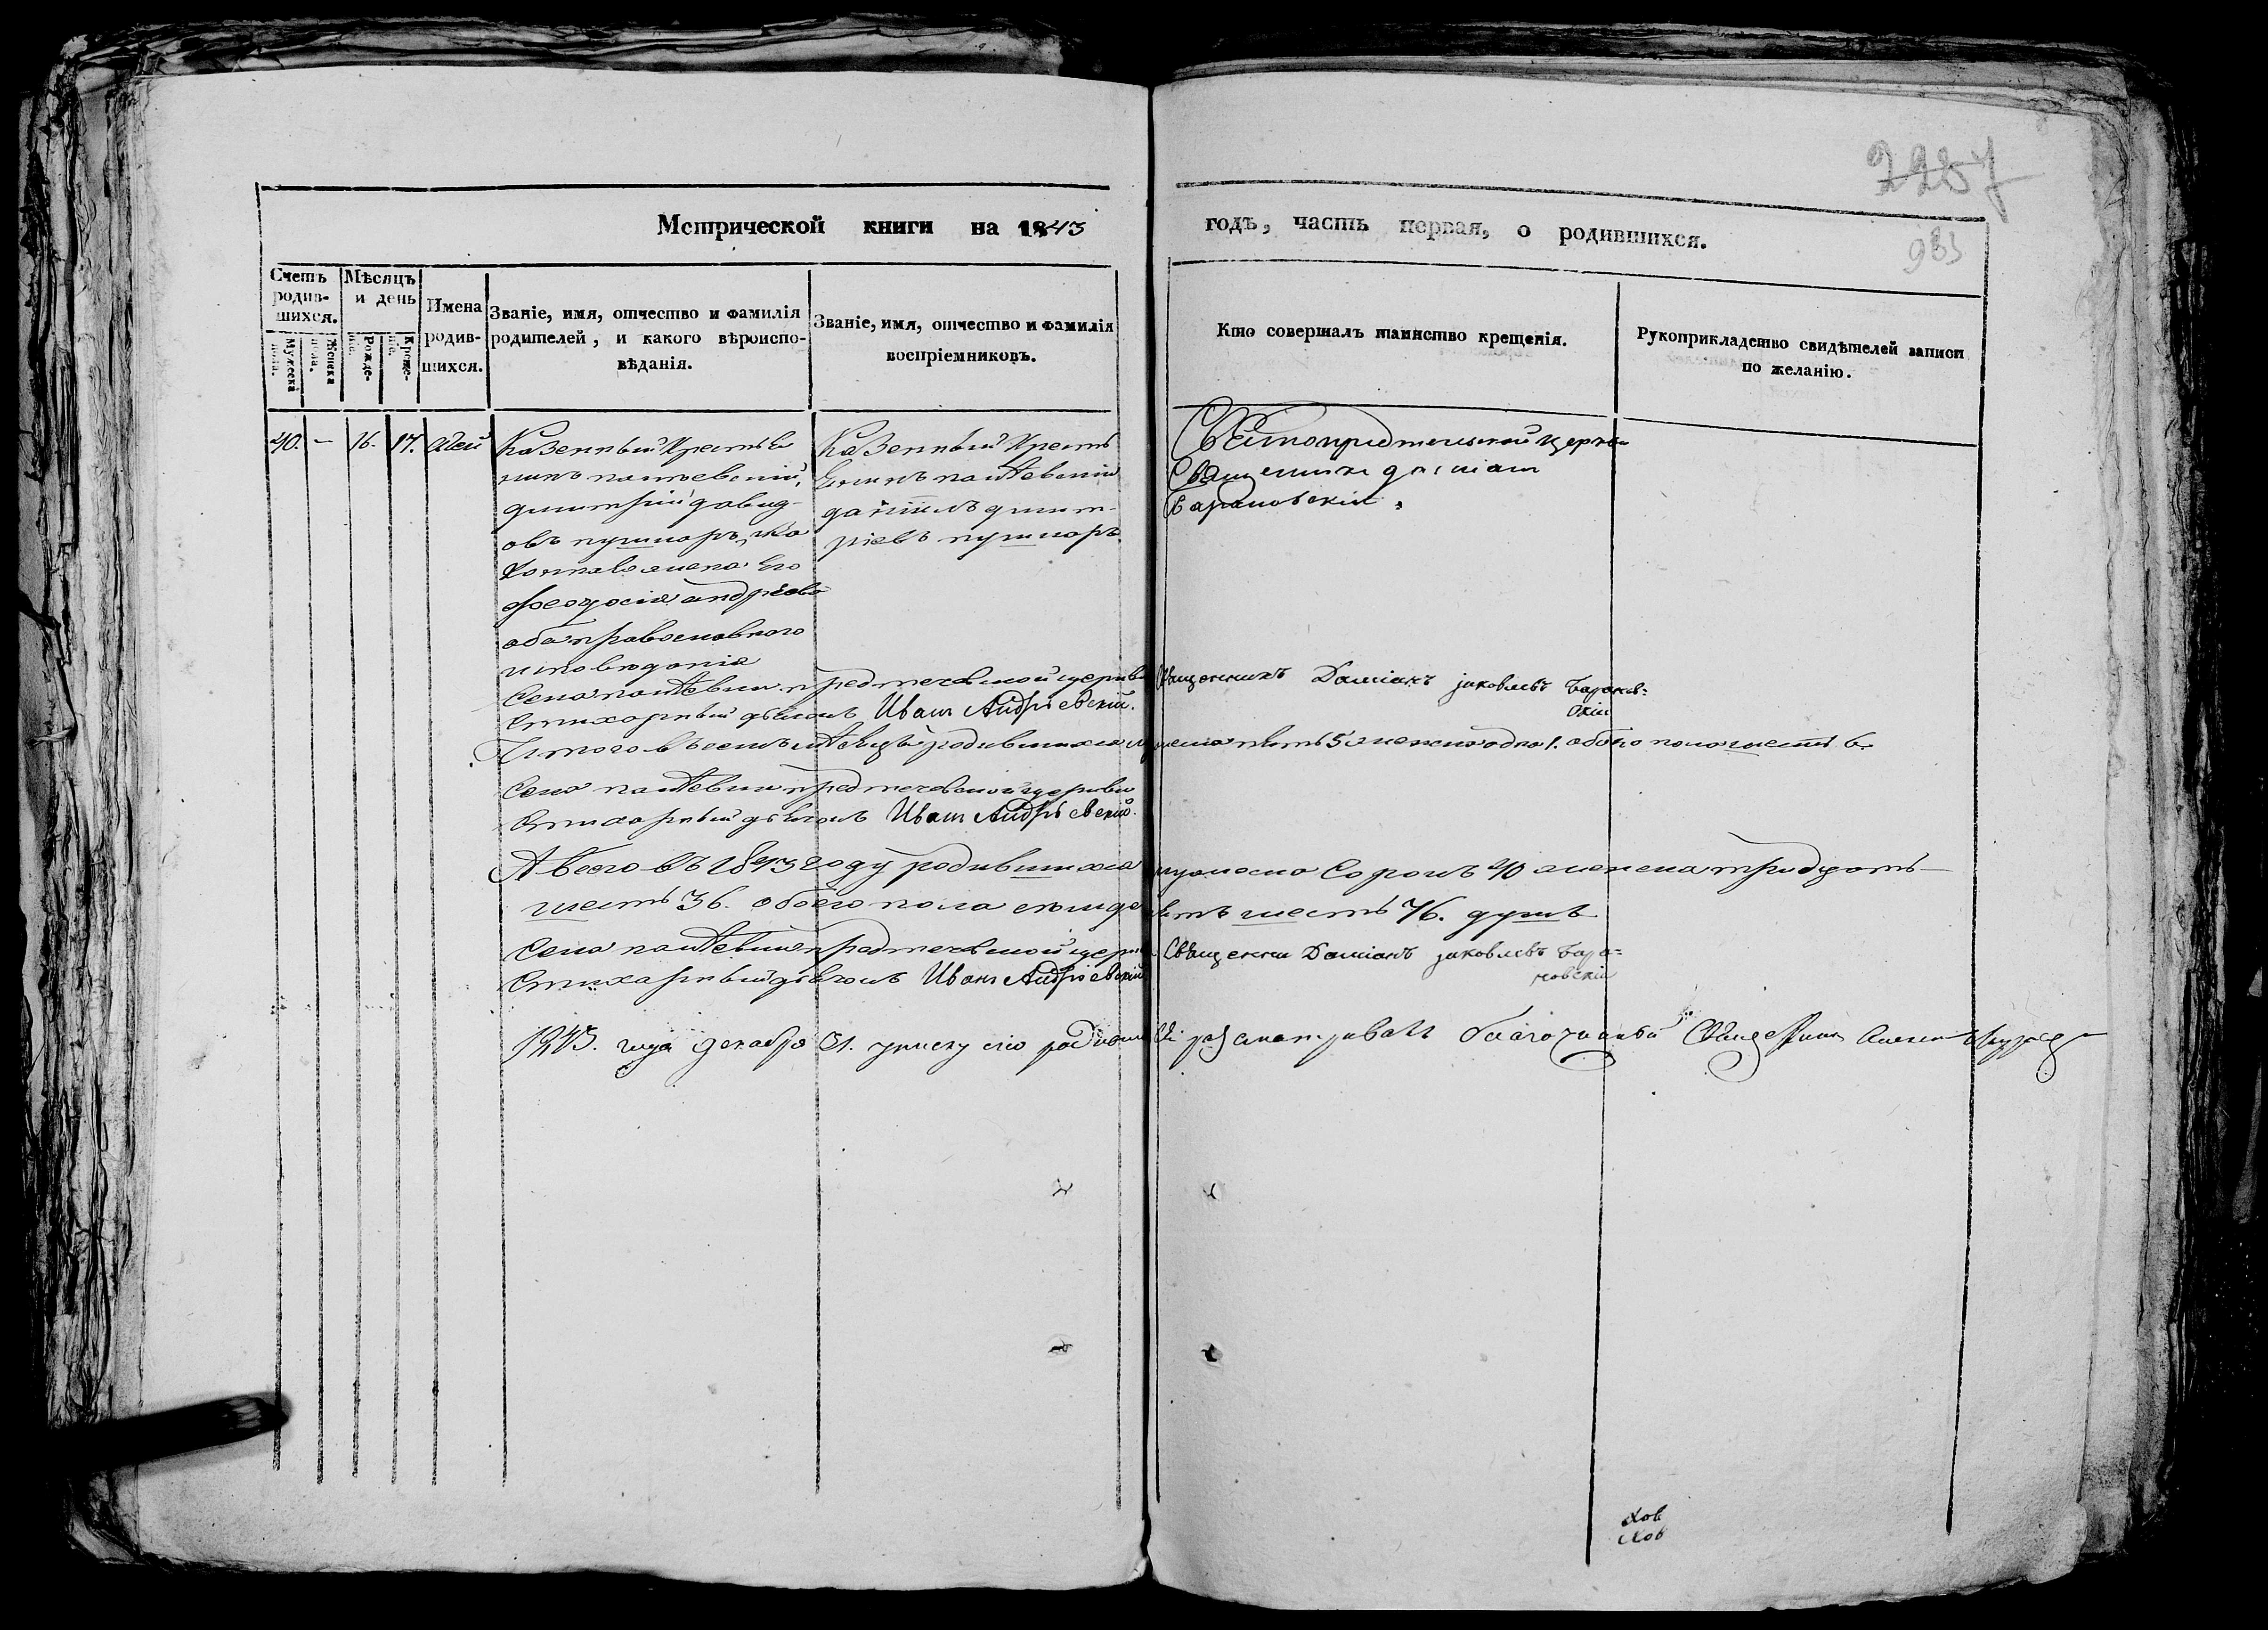 2257
Метрической книги на 1843
годъ, часть первая, о родившихся.
983
Счетъ родив-шихся.
Мѣсяцъ и день
Имена родив-шихся.
Званіе, имя, отчество и фамилія родителей, и какого вѣроиспо-вѣданія.
Званіе, имя, отчество и фамилія воспріемниковъ.
Кто совершалъ таинство крещенія.
Рукоприкладство свидѣтелей записи по желанію.
Мужеска пола.
Женска пола.
Рожде-нія.
Креще-нія.
40. – 16. 17.
Казенный Крестья
нинъ
Дмитрій Давид-
овъ пушкаръ,
жена Его
Феодосія андреева
оба православного
исповѣданія
Казенный Кресть
янинъ
даніилъ дмит-
ріевъ пушкаръ
церкви
Священникъ даміанъ
Барановскій.
Села предтечевской церкви
Стихарный дьячокъ Иванъ Андріевскій.
Священникъ Даміанъ Яковлевъ Баранов=
скій
Итого въ семъ мѣсяцѣ родившихся мужеска пять 5 женска одна 1. обоего пола шесть 6
Села предтечевской церкви
Стихарный дьячокъ Иванъ Андріевскій.
А всего въ 1843 году родившихся мужеска сорокъ 40 женска тридцать
шесть 36. обоего пола семдесятъ шесть 76. душъ
Села предтечевской церкви
Стихарный дьячокъ Иванъ Андріевскій
Священник Даміанъ Яковлевъ Бара=
новскій
1843. года декабря 31. сію разсматривалъ благочинный Священникъ